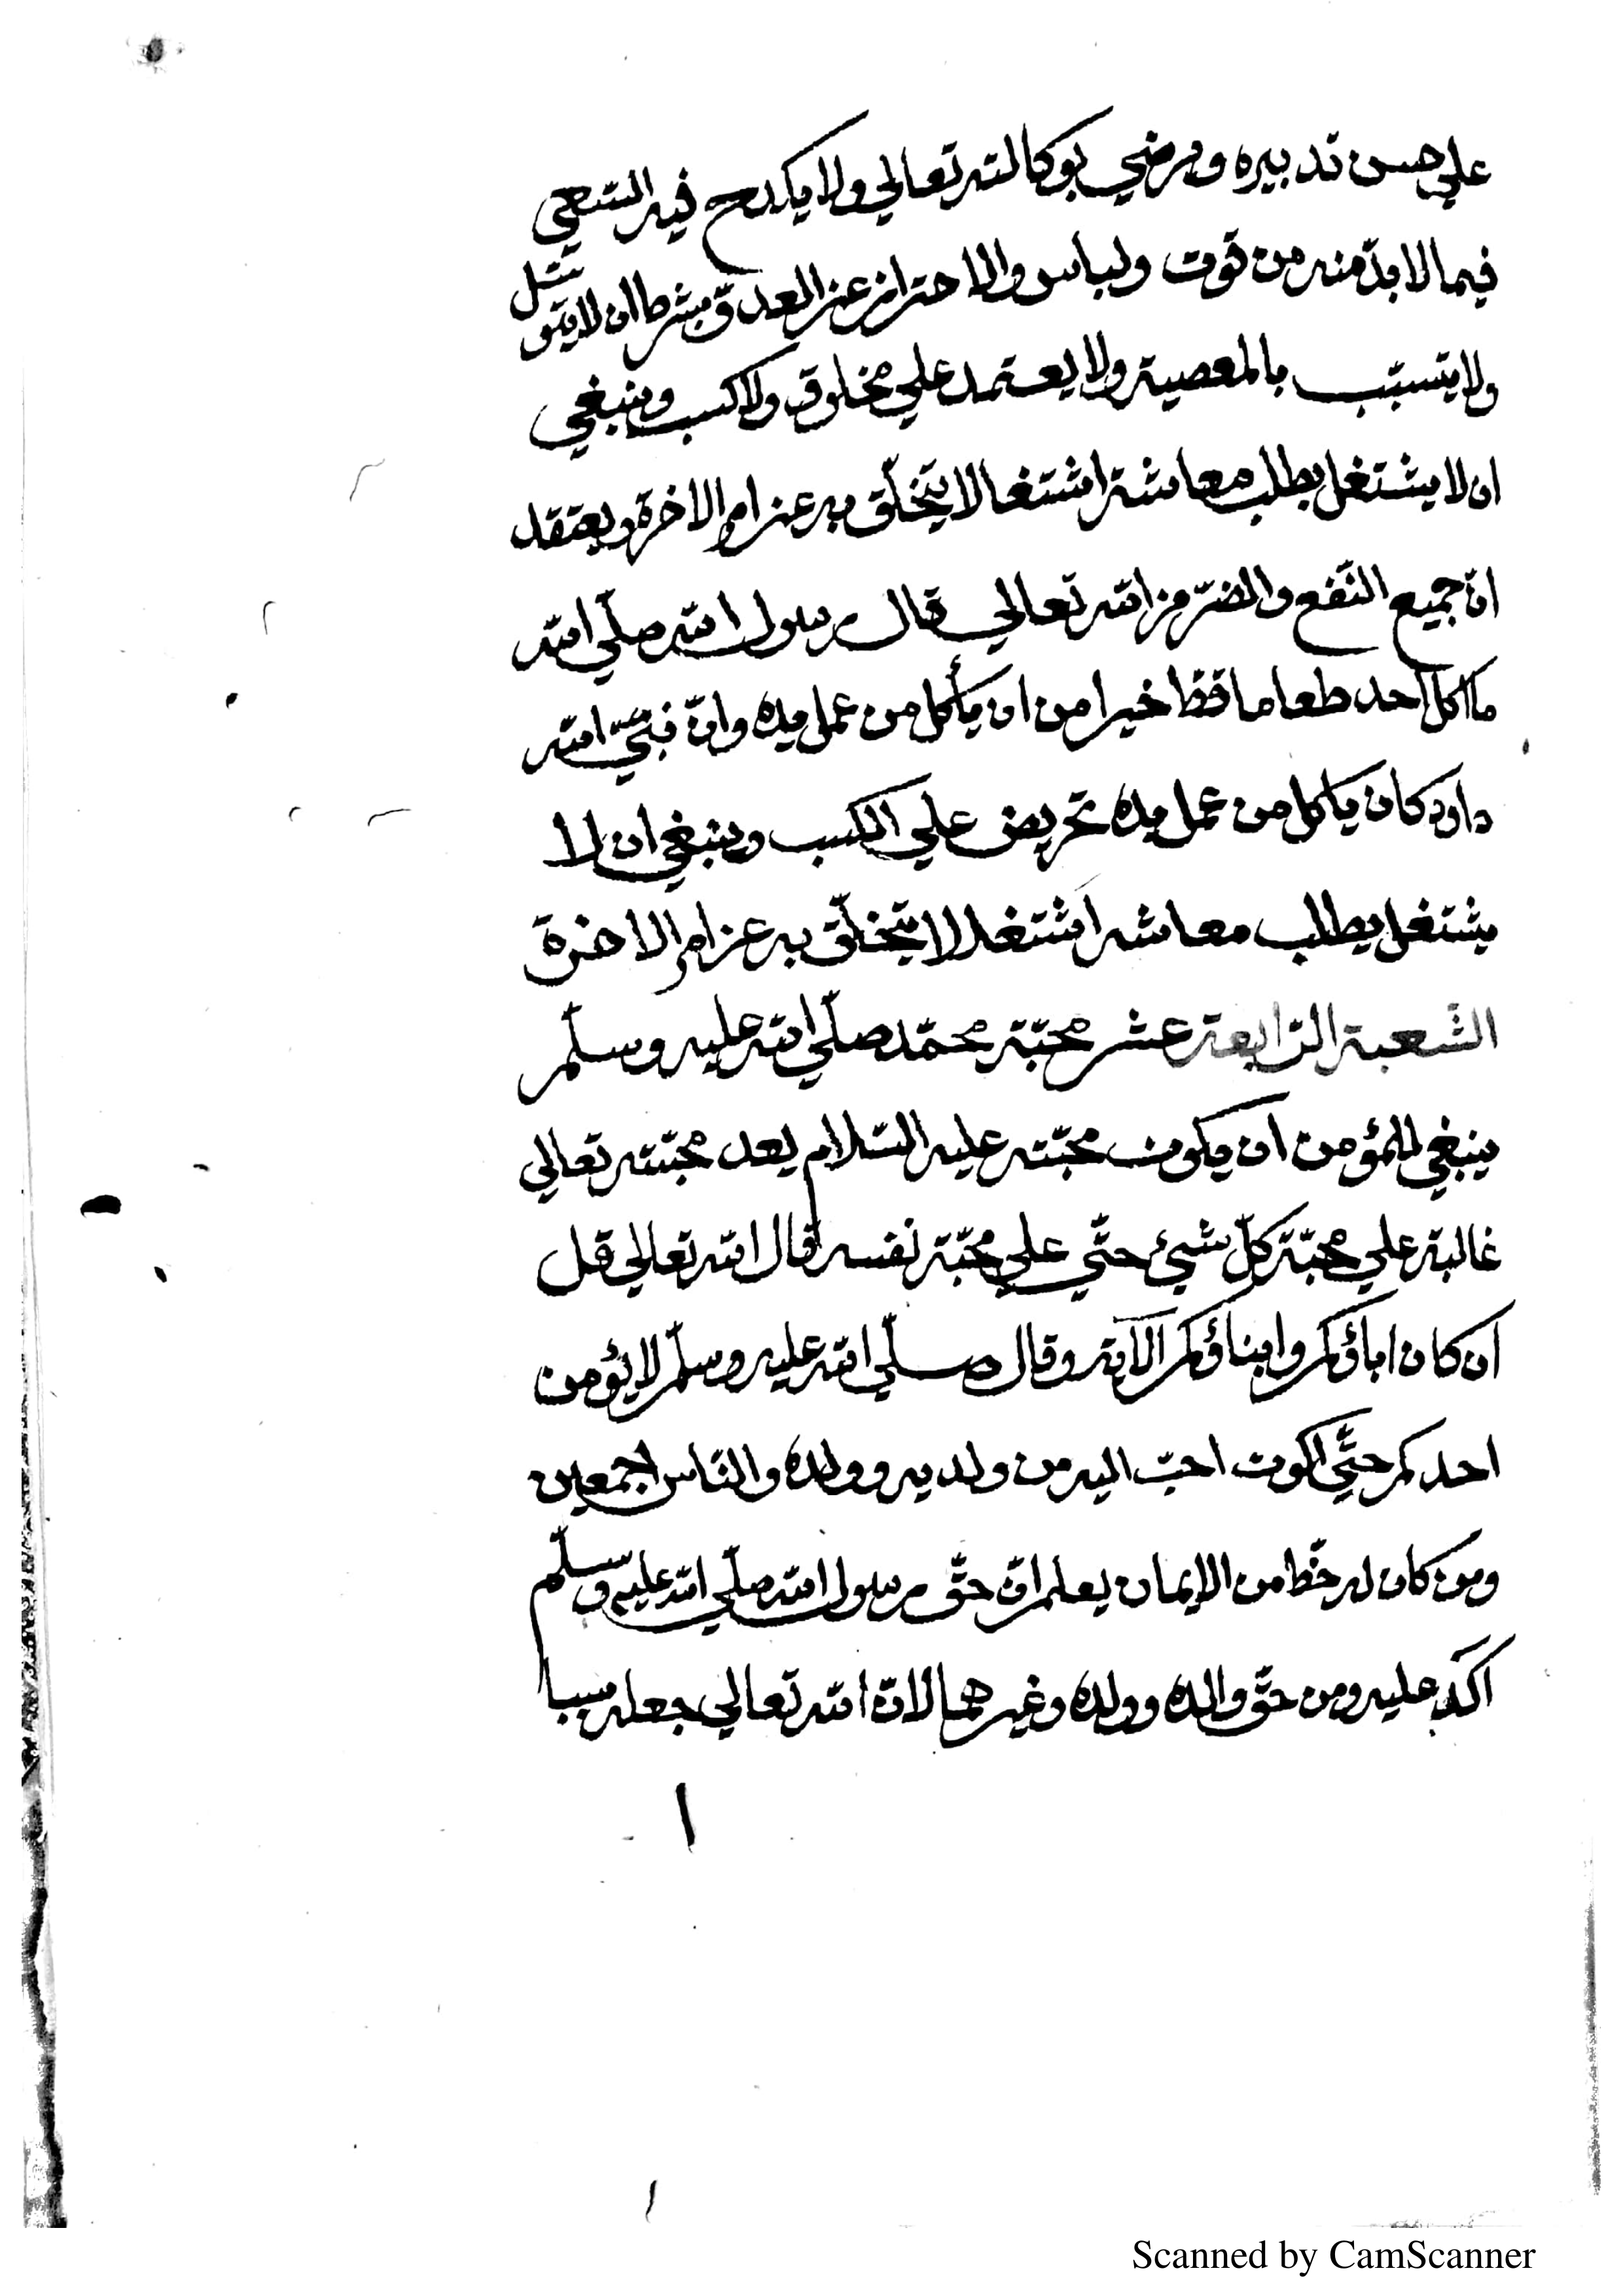 علي حسن تدبيره ورضي بوكالته تعالي ولا يكدح فيه السّعي
فيما لا بدّ منه من قوت ولباس والاحتراز عن العدوّ بشرط ان لا يتوسّل
ولا يتسبّب بالمعصية ولا يعتمد علي مخلوق ولا كسب وينبغي
ان لا يشتغل بطلب معاشة اشتغالا يتخلّق به عن امر الاخرة ويعتقد
انّ جميع النّفع والضّرّ من الله تعالي قال رسول الله صلّي الله
ما اكل احد طعاما قط خيرا من ان يأكل من عمل يده وانّ نبيّ الله
داود كان ياكل من عمل يده تحريض علي الكسب وينبغي ان لا
يشتغل بطلب معاشه اشتغالا يتخلّق به عن امر الاخرة
الشّعبة الرّابعة عشر محبّة محمّد صلّي الله عليه وسلّم
ينبغي للمؤمن ان يكون محبّته عليه السّلام بعد محبّته تعالي
غالبة علي محبّة كلّ شيئ حتّي علي محبّة نفسه قال الله تعالي قل
ان كان اباؤكم وابناؤكم الآية وقال صلّي الله عليه وسلّم لا يؤمن
احدكم حتّي اكون احبّ اليه من ولديه وولده والنّاس اجمعين
ومن كان له حظّ من الإيمان يعلم انّ حقّ رسول الله صلّي الله عليه وسلّم
اكد عليه ومن حقّ والده وولده وغيرهما لانّ الله تعالي جعله سببا
Scanned by CamScanner